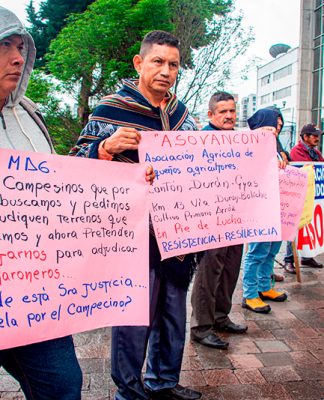 MDG.
Campesinos que por
buscamos y pedimos
adjudiquen terrenos que
mos y ahora Pretenden
jarnos para adjudicar
aroneros...
de está Sra Justicia....
ela por el Campecino?
"ASOVANCON"
Asociación Agrícola de
queños agricultores.
Cantón Durán-Gyas
Km 13 Vía Durán-Boliche
Cultivo Primario Arroz
En Pie de
Lucha....
RESISTENCIA + RESILIENCIA